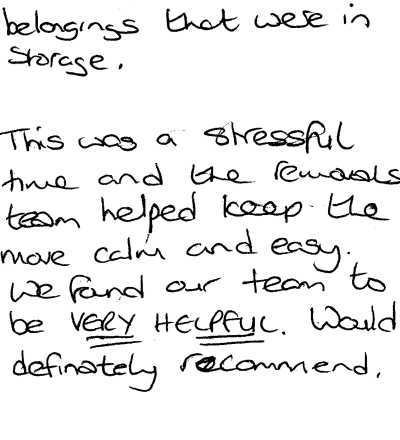 belongings that were in
storage.
This was a stressful
time and the removals
team helped keep the
move calm and easy.
We found our team to
be VERY HELPFUL. Would
definately recommend.